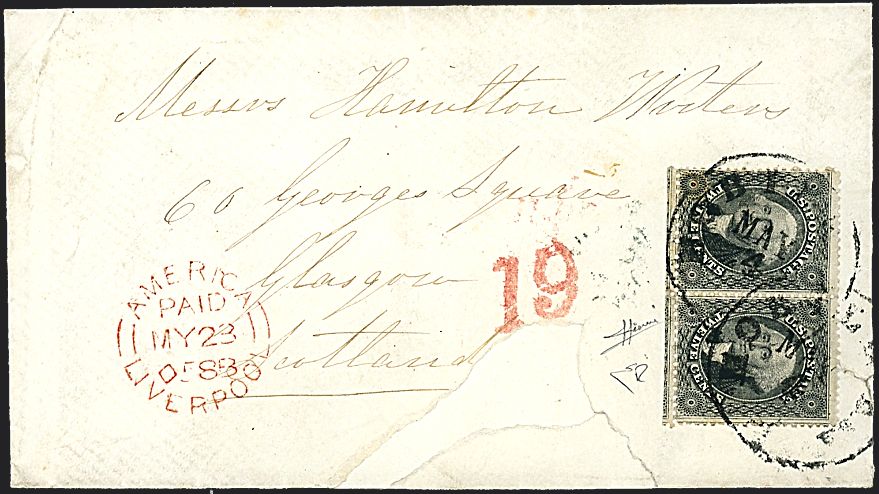 Messrs Hamilton Writers
60 Georges Square
Glasgow
Scotland
19
AMERICA
PAID
MY 23
58
LIVERPOOL
U.S. POSTAGE
TWELVE CENTS
MAY
U.S. POSTAGE
TWELVE CENTS